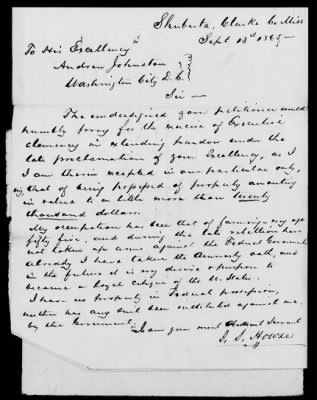 Shubuta, Clarke Co Miss
Sept 13th 1865 —
To His Excellency
Andrew Johnston
Washington City D. C.
Sir —
The undersigned your petitioner would
humbly pray for the exercise of Executive
clemency in extending pardon under the
late proclamation of your Excellency, as I
am therein excepted in one particular only,
that of being possessed of property amounting
in value to a little more than twenty
thousand dollars.
My occupation has been that of farming my age
fifty five, and during the late rebellion have
not taken up arms against the Federal Government
already I have taken the Amnesty oath, and
in the future it is my desire & purpose to
become a loyal citizen of the U. States.
I have no property in Federal possession,
neither has any suit been instituted against me
by the Government.
I am your most Obedient Servant
Howze